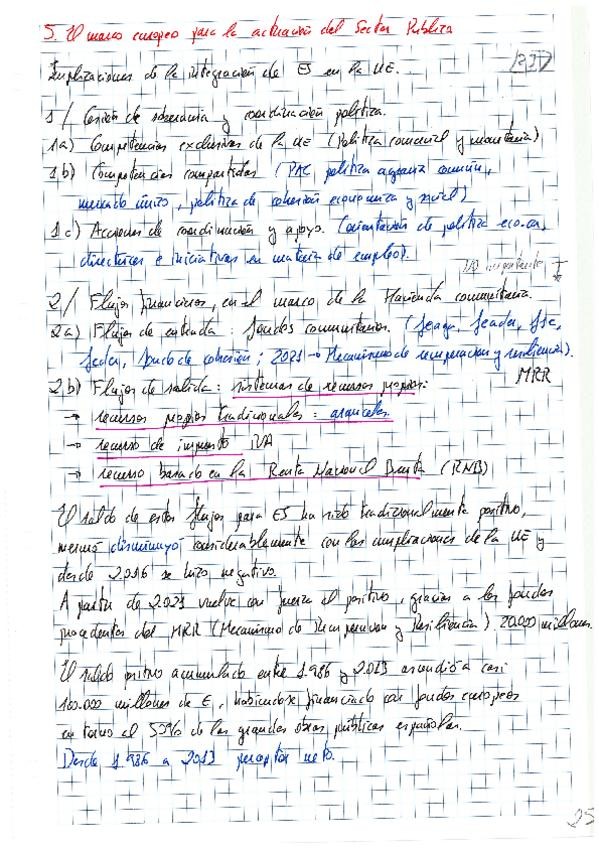 5. El marco europeo para la actuación del Sector Público
Implicaciones de la integración de ES en la UE.
1/ Cesión de soberanía y coordinación política.
1a) Competencias exclusivas de la UE (Política comercial y monetaria)
1b) Competencias compartidas (PAC política agraria común,
mercado único, política de cohesión económica y social)
1c) Acciones de coordinación y apoyo. (orientación de política eco.ca,
directrices e iniciativas en materia de empleo).
importante
2/ Flujos financieros, en el marco de la Hacienda comunitaria.
2a) Flujos de entrada: fondos comunitarios. (feaga, feader, fse,
feder, fondo de cohesión; 2021 → Mecanismo de recuperación y resiliencia).
MRR
2b) Flujos de salida: sistemas de recursos propios:
→ recursos propios tradicionales: aranceles.
→ recurso de impuesto IVA
→ recurso basado en la Renta Nacional Bruta (RNB)
El saldo de estos flujos para ES ha sido tradicionalmente positivo,
disminuyó considerablemente con las ampliaciones de la UE y
desde 2.016 se hizo negativo.
A partir de 2.021 vuelve con fuerza el positivo, gracias a los fondos
procedentes del MRR (Mecanismo de Recuperación y Resiliencia) 20.000 millones.
El saldo positivo acumulado entre 1.986 y 2.013 ascendió a casi
100.000 millones de €, habiéndose financiado con fondos europeos
en torno al 50% de las grandes obras públicas españolas.
Desde 1.986 a 2013 perceptor neto.
25